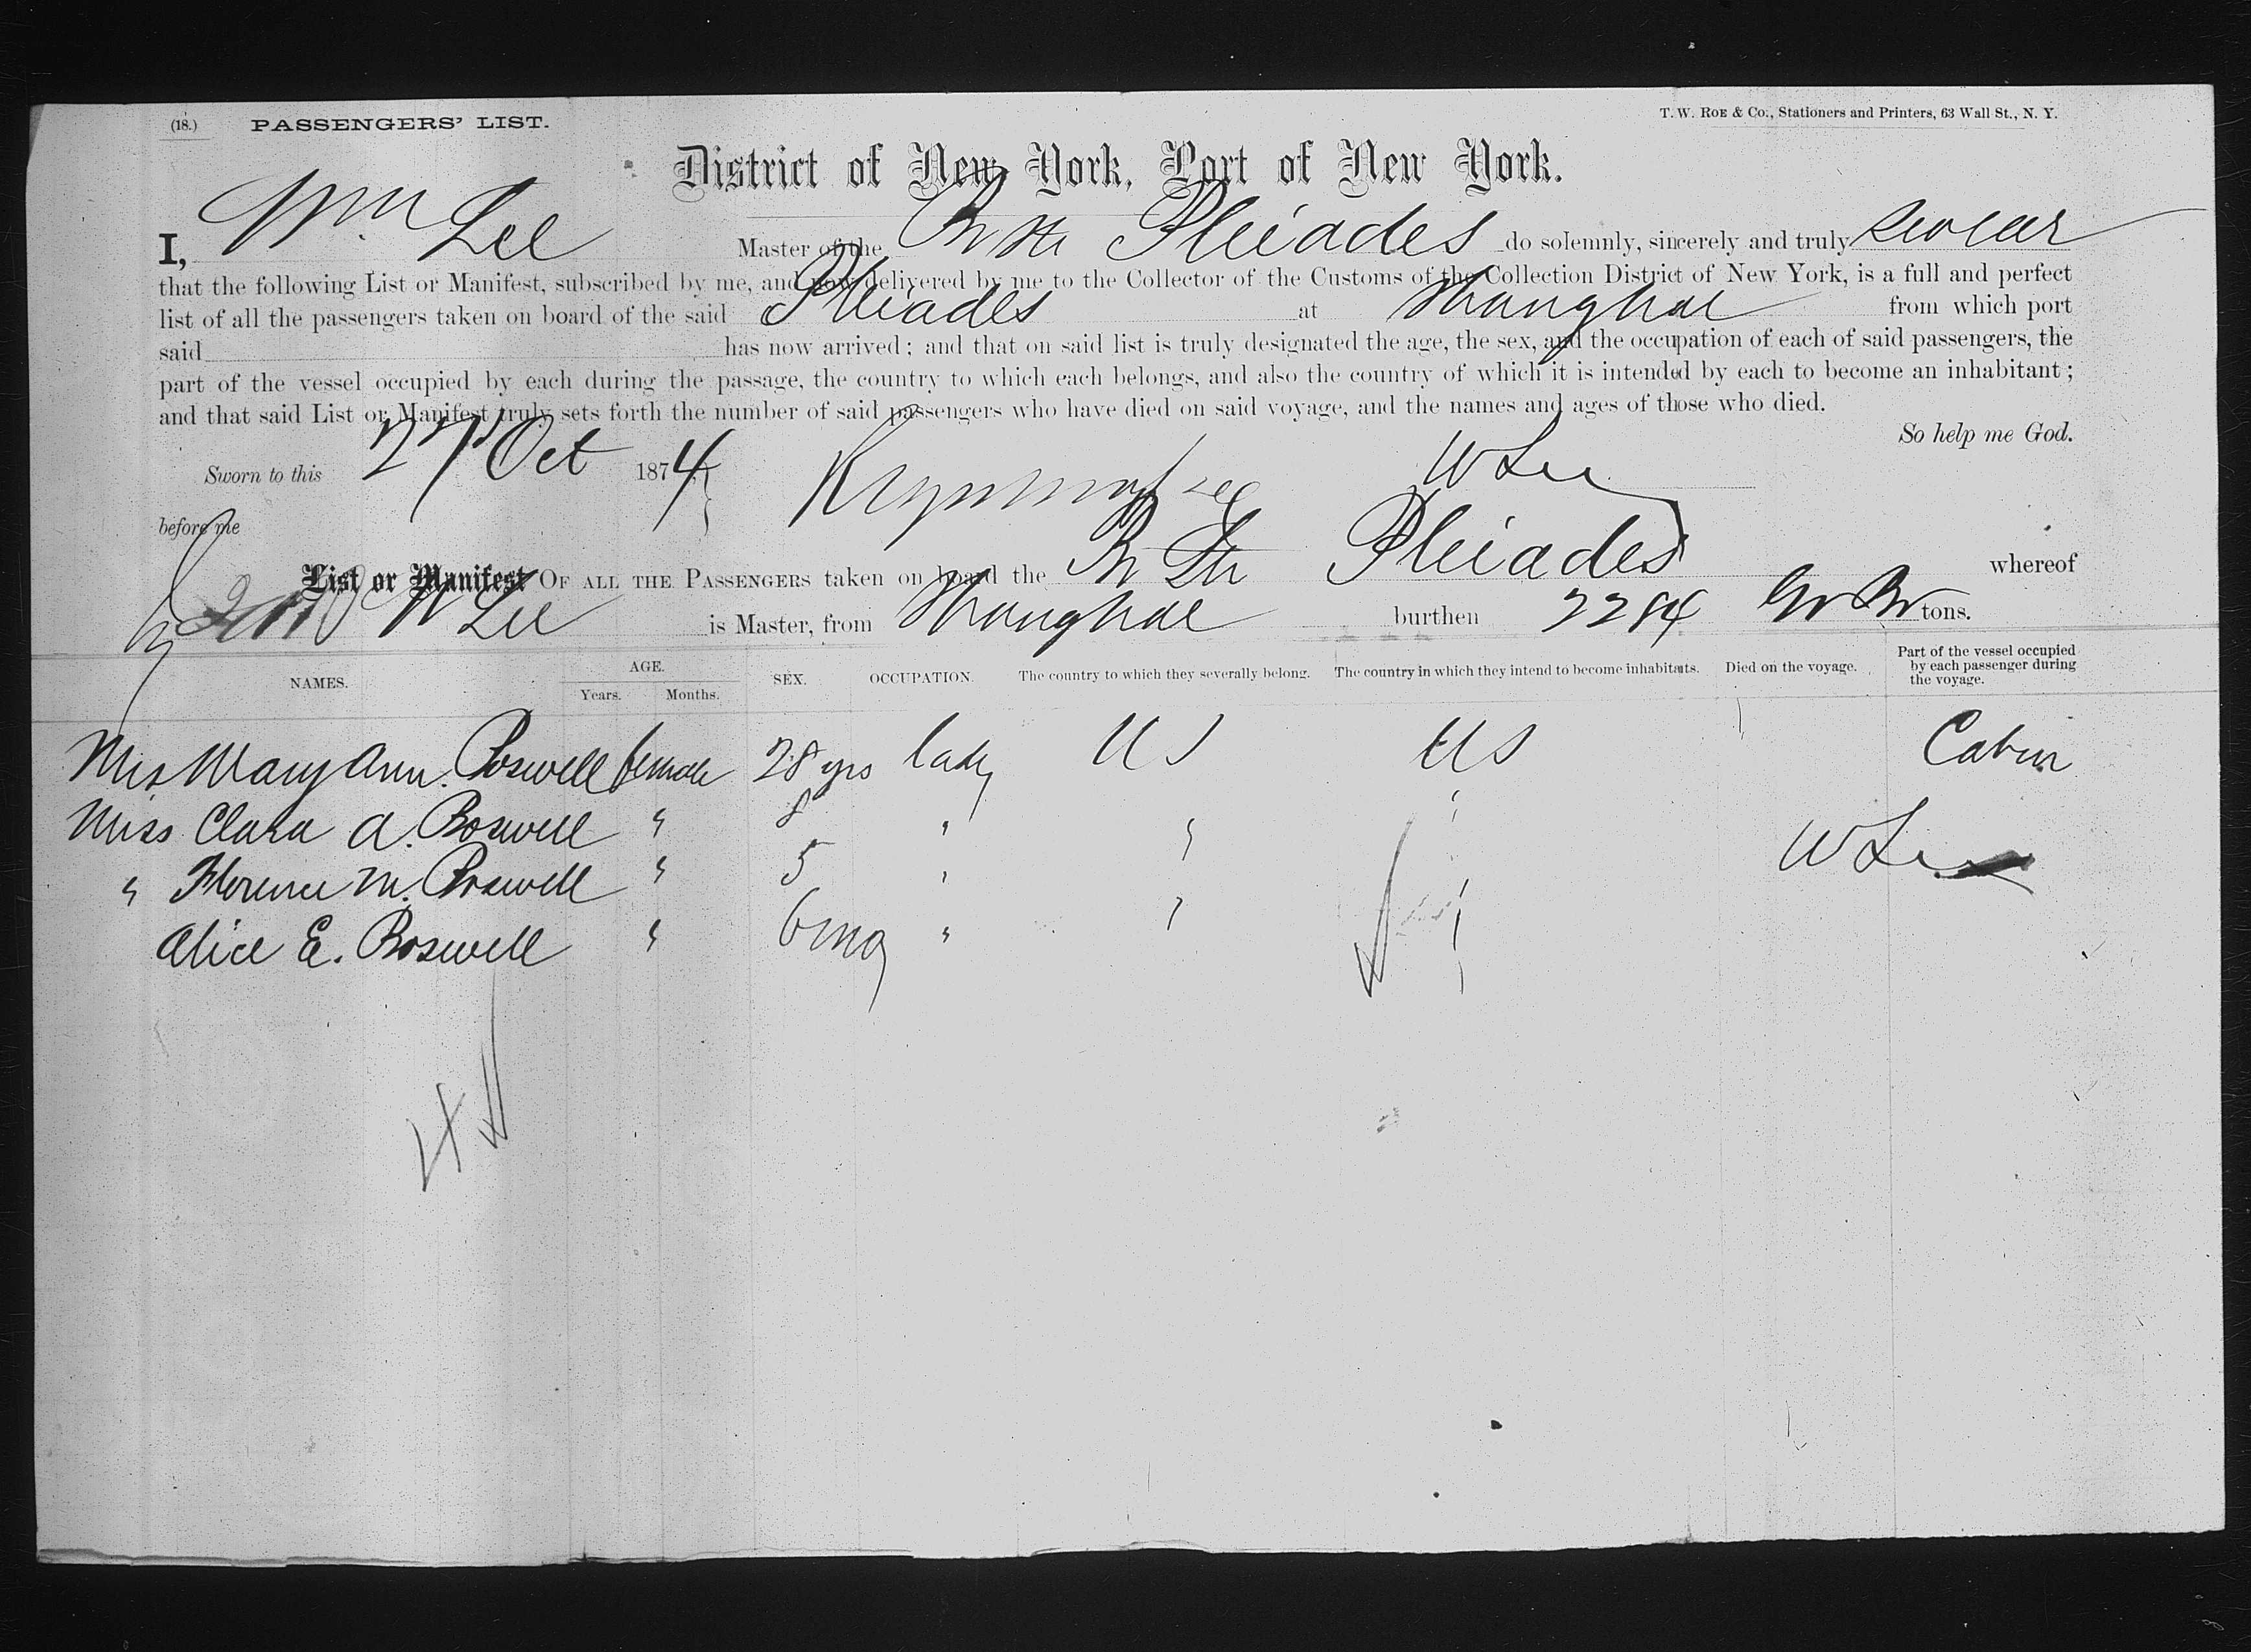 (18.) PASSENGERS' LIST.
T. W. ROE & Co., Stationers and Printers, 63 Wall St., N. Y.
District of New York, Port of New York.
I, Wm Lee Master of the Br Str Pleiades do solemnly, sincerely and truly swear
that the following List or Manifest, subscribed by me, and now delivered by me to the Collector of the Customs of the Collection District of New York, is a full and perfect
list of all the passengers taken on board of the said Pleiades at Shanghae from which port
said has now arrived; and that on said list is truly designated the age, the sex, and the occupation of each of said passengers, the
part of the vessel occupied by each during the passage, the country to which each belongs, and also the country of which it is intended by each to become an inhabitant;
and that said List or Manifest truly sets forth the number of said passengers who have died on said voyage, and the names and ages of those who died.
So help me God.
Sworn to this 27 Oct 1874 W Lee
before me
List or Manifest OF ALL THE PASSENGERS taken on board the Br Str Pleiades whereof
W Lee is Master, from Shanghae burthen 2284 tons.
NAMES. AGE. Years. Months. SEX. OCCUPATION. The country to which they severally belong. The country in which they intend to become inhabitants. Died on the voyage. Part of the vessel occupied by each passenger during the voyage.
Mrs Mary Ann. Boswell female 28 yrs lady U S U S Cabin
Miss Clara A. Boswell " 8 " "
" Florence M. Boswell " 5 " " W Lee
Alice E. Boswell " 6 mos " "
4